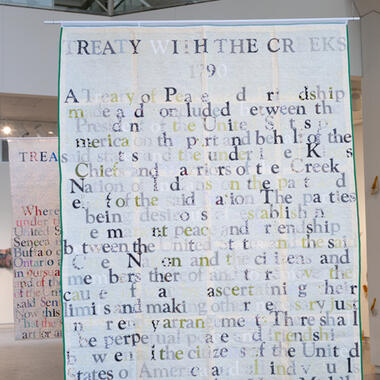 TREATY WITH THE CREEKS
1790
A Treaty of Peace and Friendship
made and concluded between the
President of the United States of
America on the part and behalf of the
said states and the undersigned Kings
Chiefs and Warriors of the Creek
Nation of Indians on the part and
behalf of the said Nation The parties
being desirous of establishing
permanent peace and friendship
between the United States and the said
Creek Nation and the citizens and
members thereof and to remove the
causes of war by ascertaining their
limits and making other necessary just
and friendly arrangements There shall
be perpetual peace and friendship
between all the citizens of the United
States of America and all individuals
TREA
Where
under
United S
Seneca
Buffalo C
Ontario
in pursua
and of th
of the Uni
said Sen
Now this
That the s